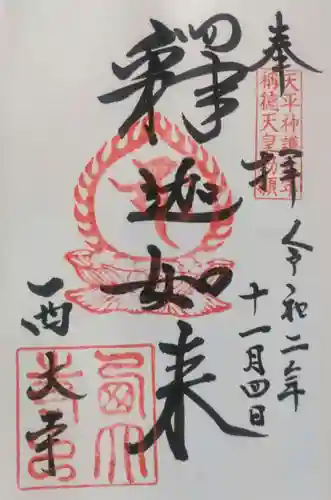 奉拝
天平神護元年
称徳天皇勅願
令和二年
十一月四日
釋迦如来
西大寺